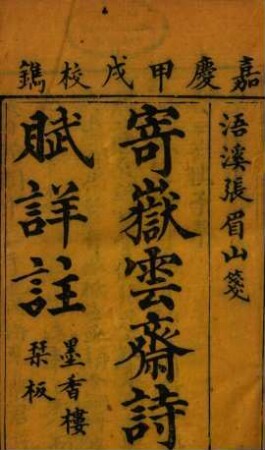 嘉慶甲戌校鐫
浯溪張眉山箋
寄嶽雲齋詩
賦詳註
墨香樓
栞板